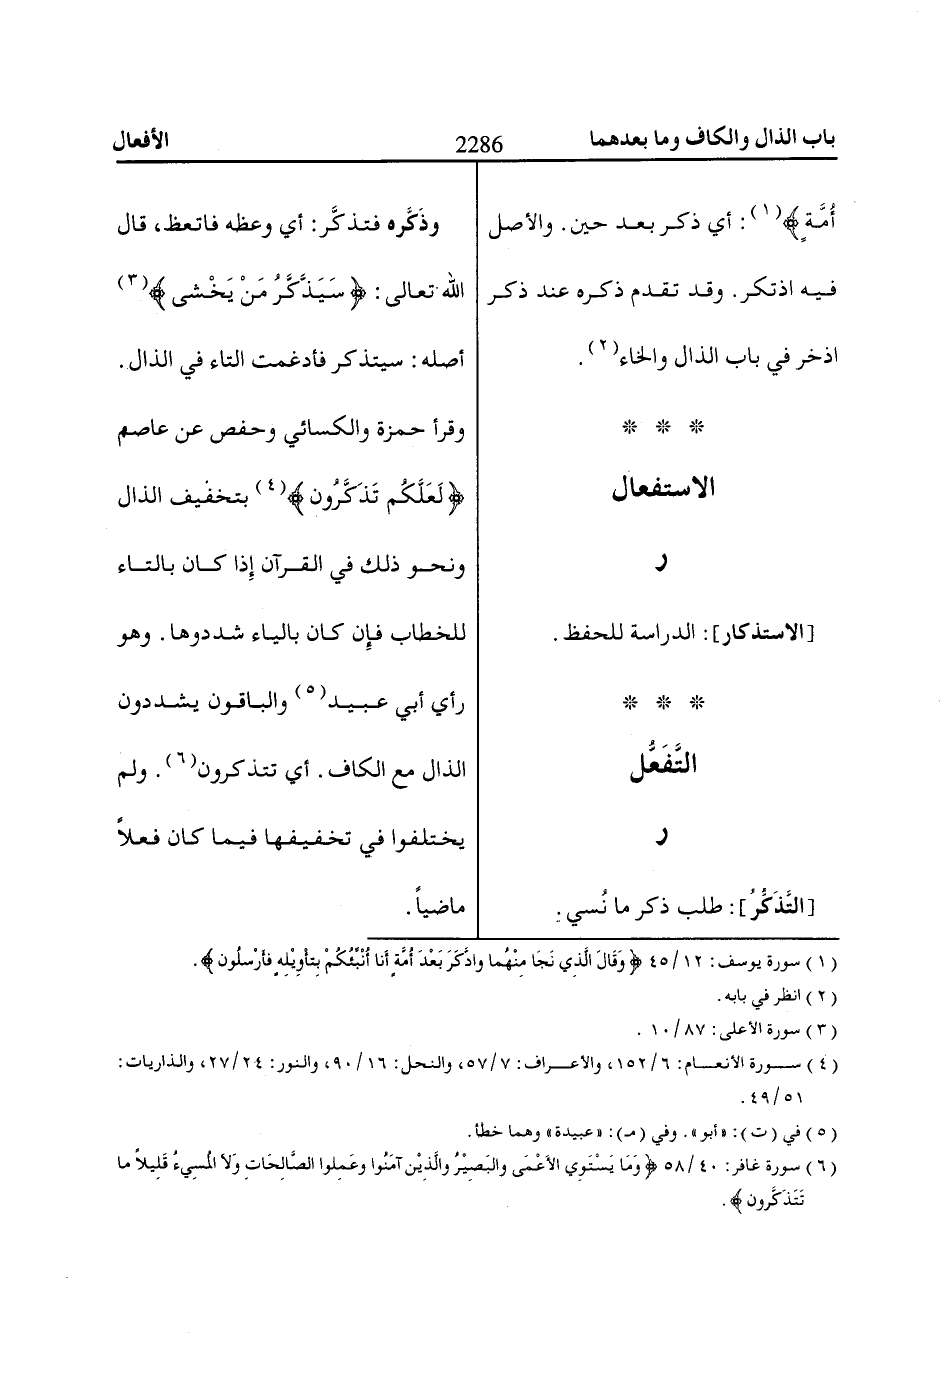 باب الذال والكاف وما بعدهما 2286 الأفعال
أُمَّةٍ﴾(١): أي ذكر بعد حين. والأصل
فيه اذتكر. وقد تقدم ذكره عند ذكر
اذخر في باب الذال والخاء(٢).
* * *
الاستفعال
ر
[الاستذكار]: الدراسة للحفظ.
* * *
التَّفَعُّل
ر
[التَّذَكُّرُ]: طلب ذكر ما نُسي.
وذَكَّره فتذكَّر: أي وعظه فاتعظ، قال
الله تعالى: ﴿سَيَذَّكَّرُ مَنْ يَخْشى﴾(٣)
أصله: سيتذكر فأدغمت التاء في الذال.
وقرأ حمزة والكسائي وحفص عن عاصم
﴿لَعَلَّكُم تَذَكَّرُون﴾(٤) بتخفيف الذال
ونحو ذلك في القرآن إذا كان بالتاء
للخطاب فإن كان بالياء شددوها. وهو
رأي أبي عبيد(٥) والباقون يشددون
الذال مع الكاف. أي تتذكرون(٦). ولم
يختلفوا في تخفيفها فيما كان فعلاً
ماضياً.
(١) سورة يوسف: ١٢/ ٤٥ ﴿وَقَالَ الَّذِي نَجَا مِنْهُما وادَّكَرَ بَعْدَ أُمَّةٍ أنا أُنَبِّئُكُمْ بِتأوِيْلِهِ فأرْسِلُون﴾.
(٢) انظر في بابه.
(٣) سورة الأعلى: ٨٧/ ١٠.
(٤) سورة الأنعام: ٦/ ١٥٢، والأعراف: ٧/ ٥٧، والنحل: ١٦/ ٩٠، والنور: ٢٤/ ٢٧، والذاريات:
٥١/ ٤٩.
(٥) في (ت): «أبو». وفي (مـ): «عبيدة» وهما خطأ.
(٦) سورة غافر: ٤٠/ ٥٨ ﴿وَمَا يَسْتَوِي الأعْمَى والبَصِيْرُ والَّذِيْن آمَنُوا وعَمِلوا الصَّالِحَات وَلَا المُسِيءُ قَلِيلاً ما
تَتَذَكَّرون﴾.